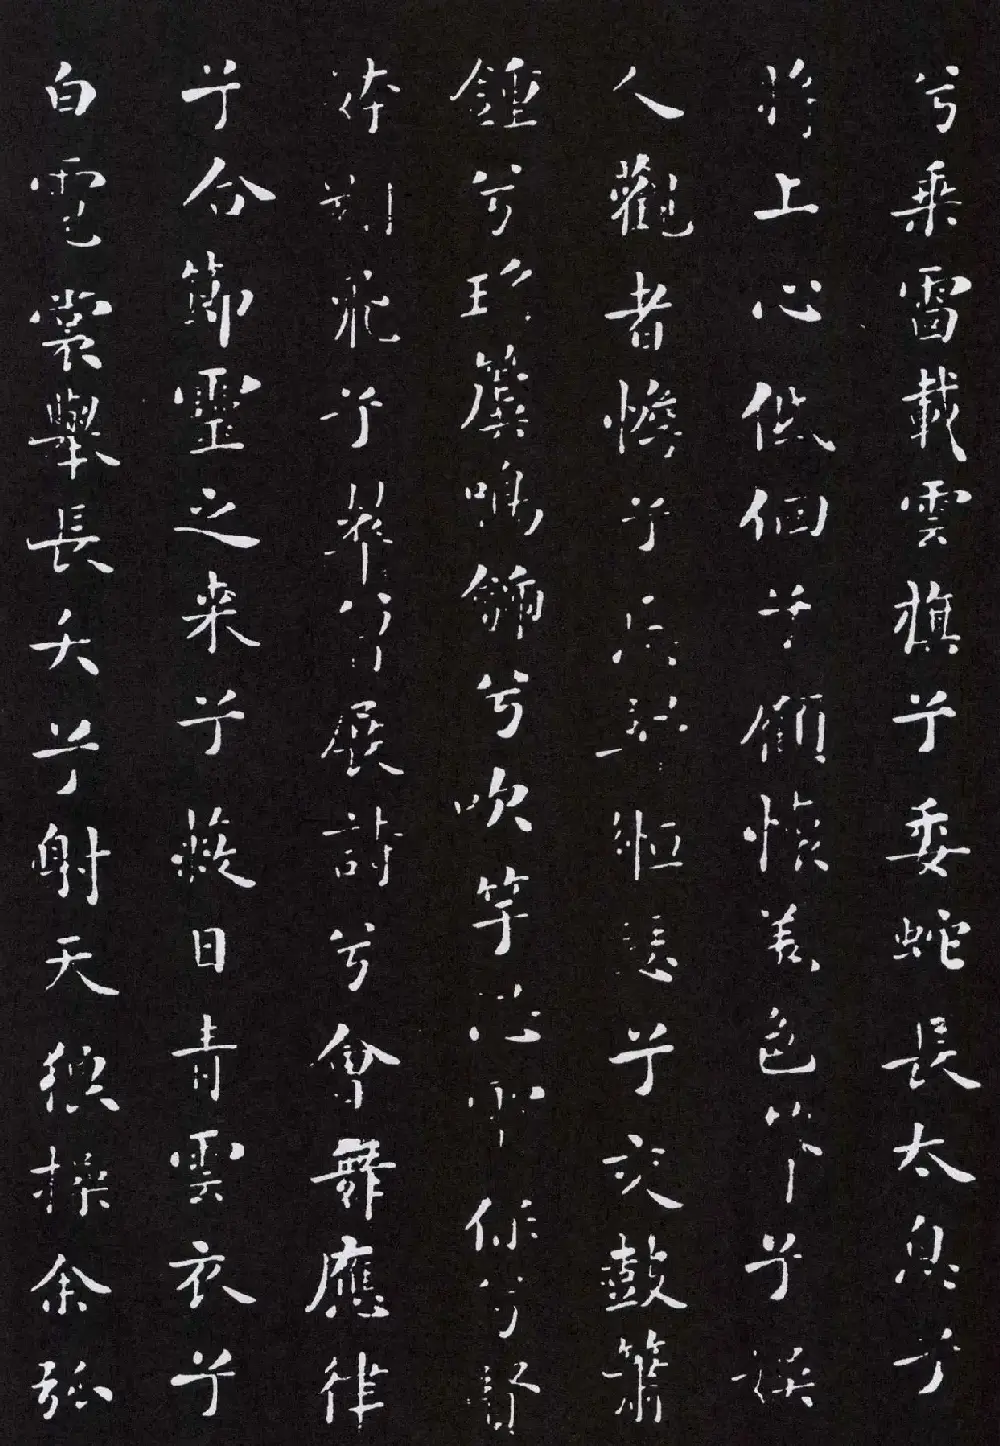 兮乘雷載雲旗兮委蛇長太息兮
將上心低佪兮顧懷羌色兮娛
人觀者憺兮忘歸緪瑟兮交鼓簫
鍾兮瑤簴鳴篪兮吹竽思靈保兮賢
姱翾飛兮翠曾展詩兮會舞應律
兮合節靈之來兮蔽日青雲衣兮
白霓裳舉長矢兮射天狼操余弧